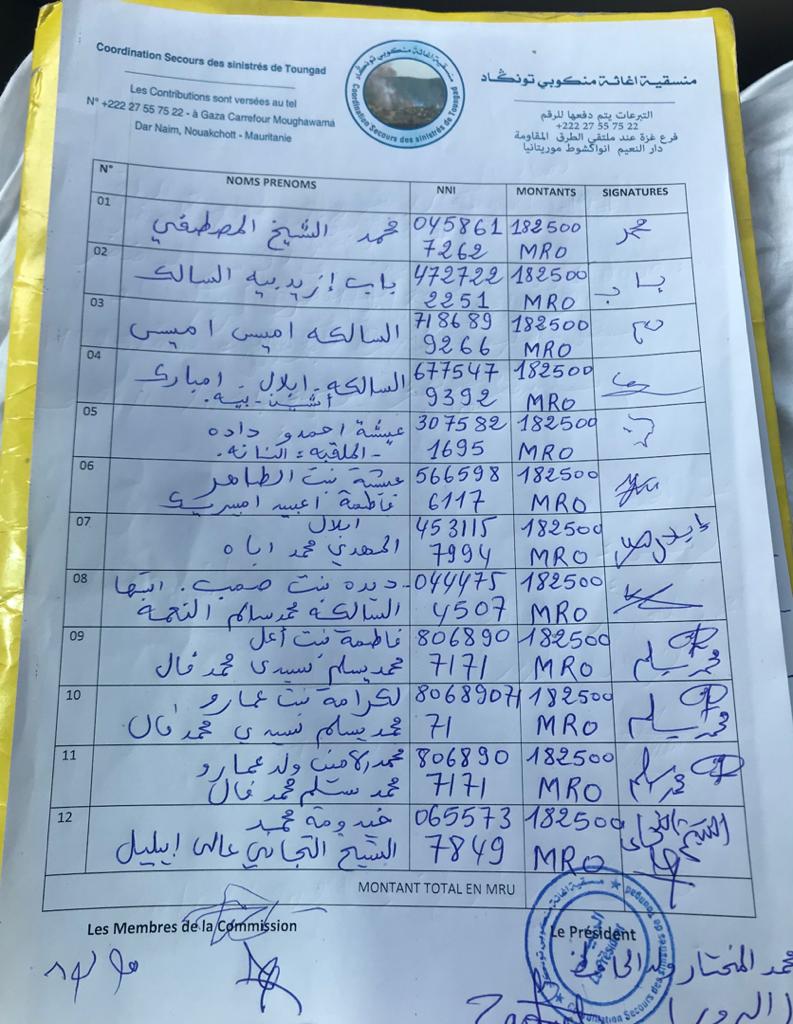 Coordination Secours des sinistrés de Toungad
Les Contributions sont versées au tel
N° +222 27 55 75 22 - à Gaza Carrefour Moughawama
Dar Naim, Nouakchott - Mauritanie
منسقية اغاثة منكوبي تونگاد
Coordination Secours des sinistrés de Toungad
منسقية اغاثة منكوبي تونگاد
التبرعات يتم دفعها للرقم
+222 27 55 75 22
فرع غزة عند ملتقي الطرق المقاومة
دار النعيم انواكشوط موريتانيا
N° NOMS PRENOMS NNI MONTANTS SIGNATURES
01 محمد الشيخ المصطفي 045861 182500
7262 MRO
02 باب إزيد بيه السالك 472722 182500 باب
2251 MRO
03 السالكه اميس اميس 718689 182500
9266 MRO
04 السالكة ابلال امبارك 677547 182500
9392 MRO
05 عيشة احمدو داده 307582 182500
1695 MRO
06 عيشة بنت الطاهر 566598 182500
فاطمة 6117 MRO
07 ابلال 453115 182500
المهدي محمد اباه 7994 MRO
08 ديده بنت صمب 044475 182500
السالكة محمد سالم النعمة 4507 MRO
09 فاطمة بنت أعل 806890 182500
محمد يسلم سيدي محمد فال 7171 MRO
10 لكرامة بنت عمارو 8068901 182500
محمد يسلم سيدي محمد فال 71 MRO
11 محمد الامين ولد عمارو 806890 182500
محمد سلم محمد فال 7171 MRO
12 خيدومة محمد 065573 182500
الشيخ التجاني عالى إبليل 7849 MRO
MONTANT TOTAL EN MRU
Les Membres de la Commission Le Président
محمد المختار ولد الحافظ